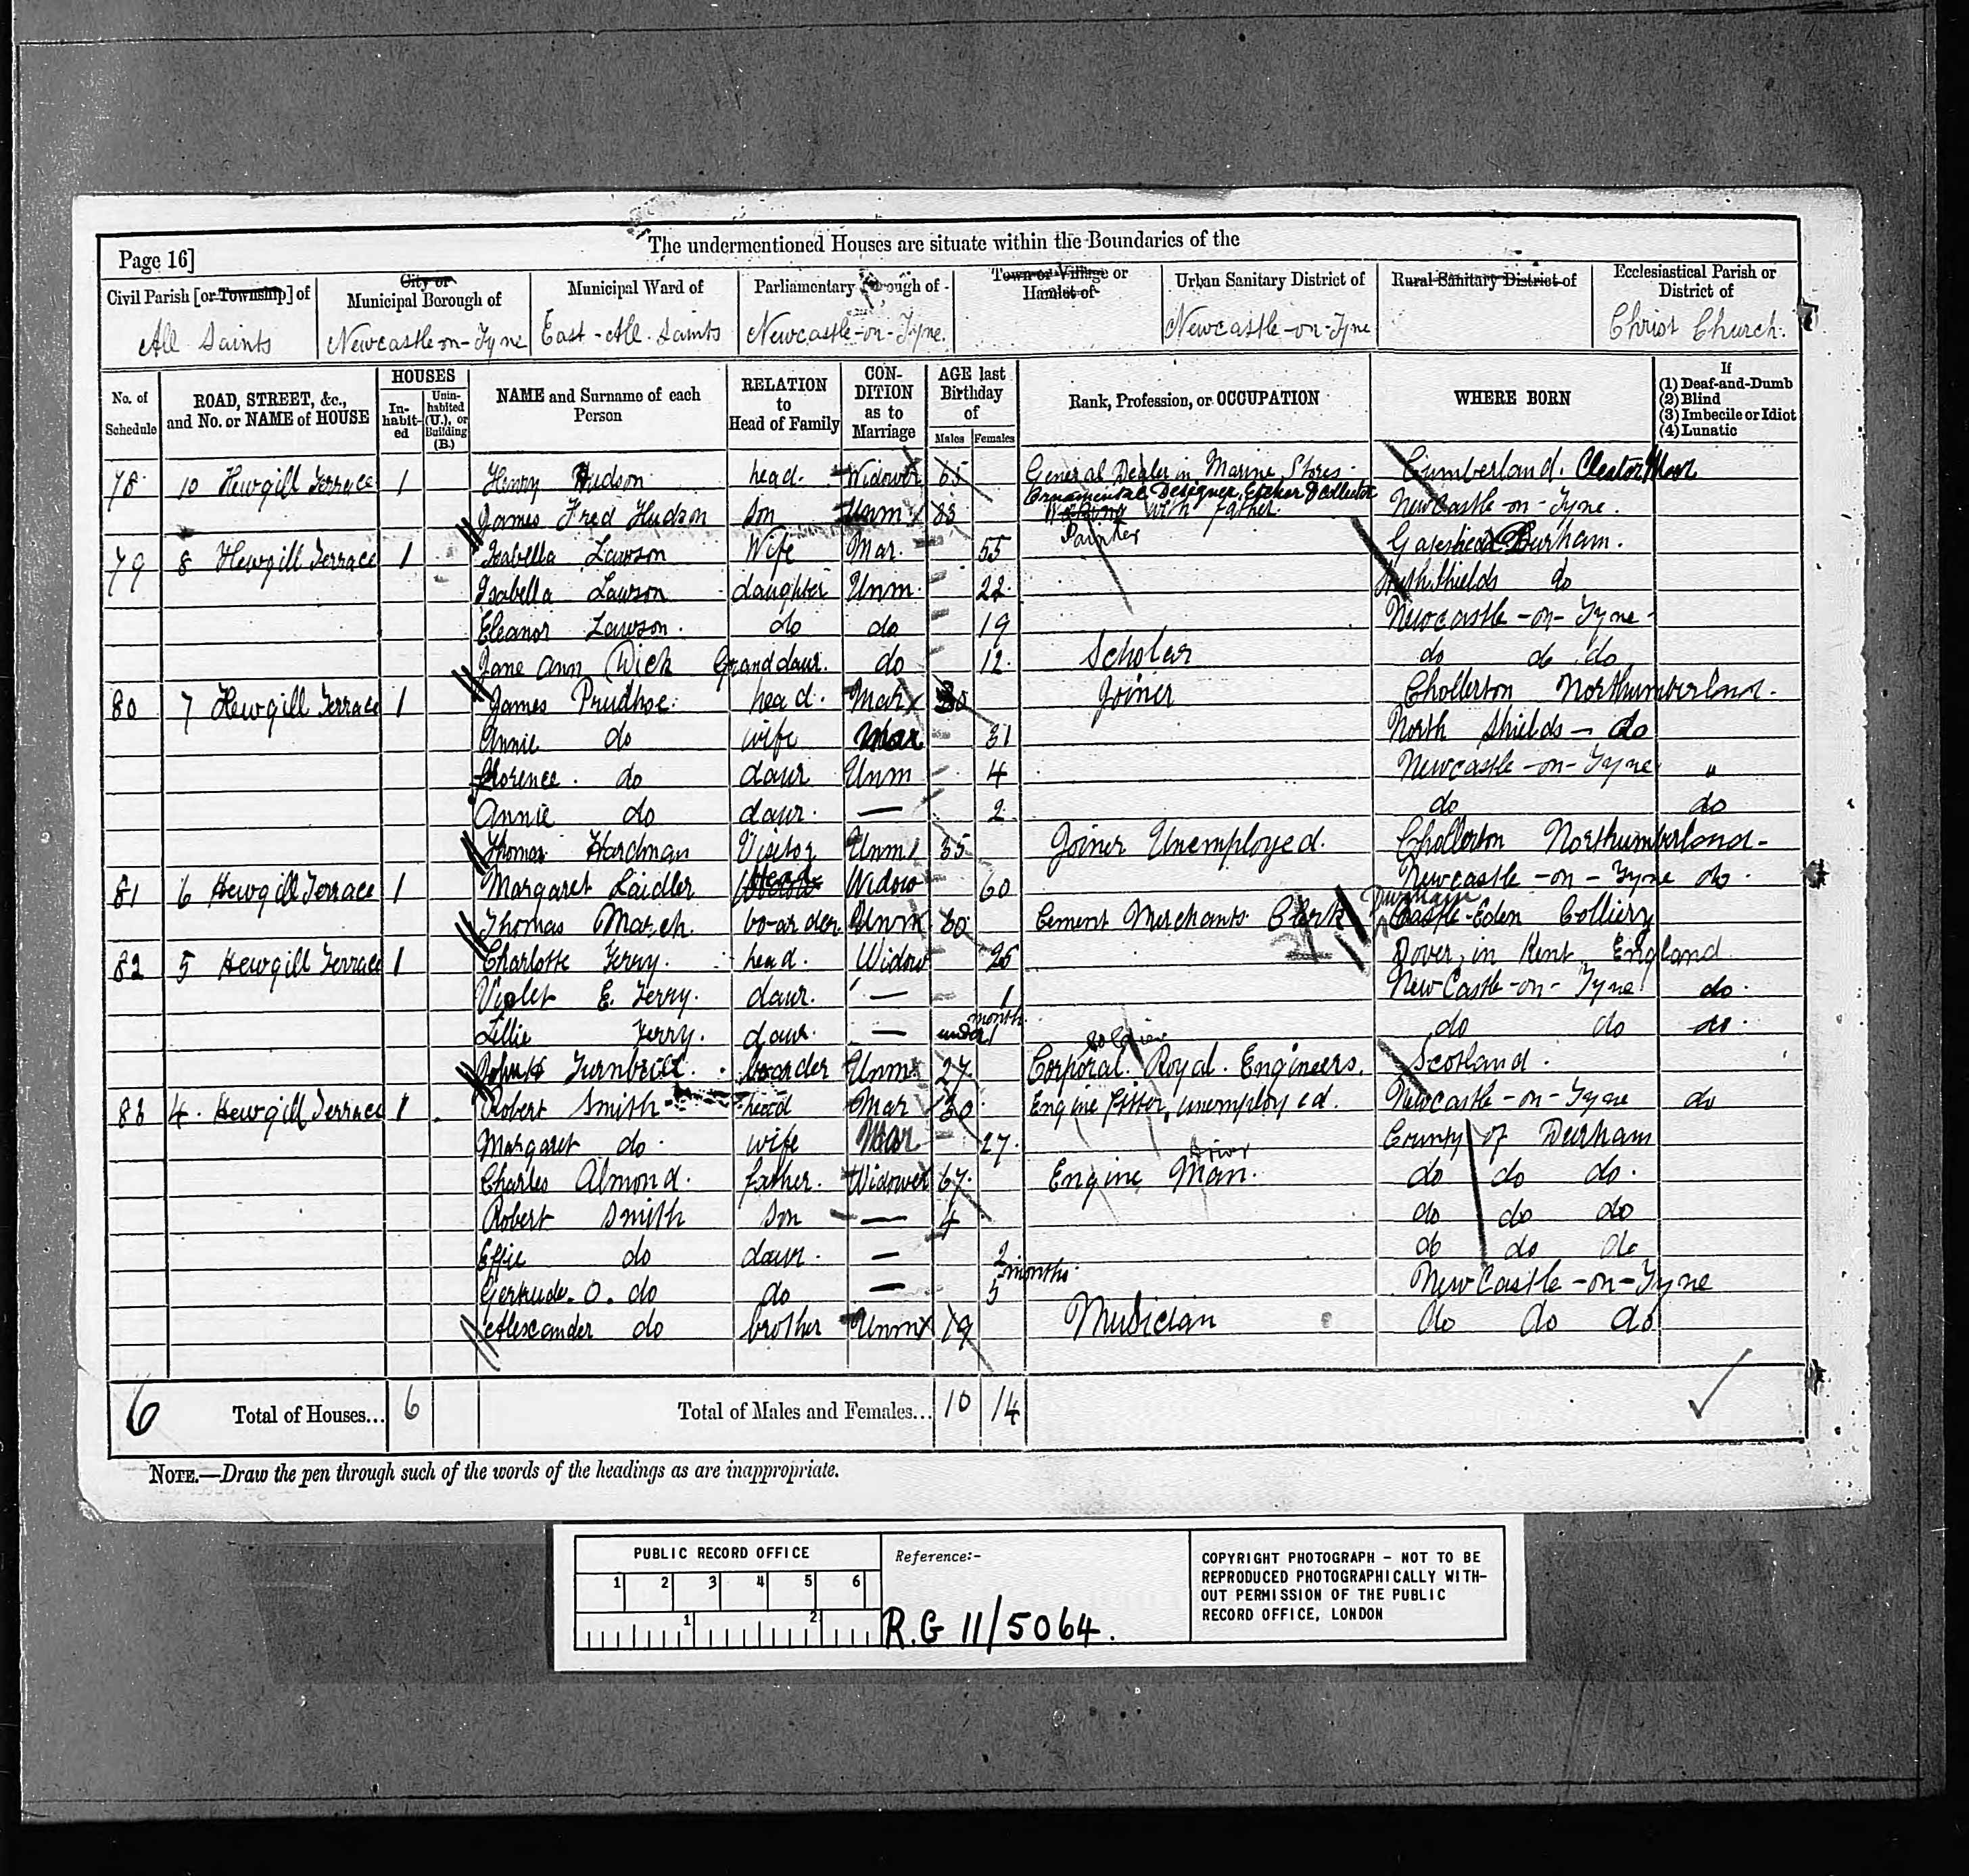 The undermentioned Houses are situate within the Boundaries of the
Page 16]
Civil Parish [or Township] of
City or Municipal Borough of
Municipal Ward of
Parliamentary Borough of
Town or Village or Hamlet of
Urban Sanitary District of
Rural Sanitary District of
Ecclesiastical Parish or District of
All Saints
Newcastle-on-Tyne
East-All Saints
Newcastle-on-Tyne.
Newcastle-on-Tyne
Christ Church.
No. of Schedule
ROAD, STREET, &c., and No. or NAME of HOUSE
HOUSES
Inhabited
Uninhabited (U.), or Building (B.)
NAME and Surname of each Person
RELATION to Head of Family
CONDITION as to Marriage
AGE last Birthday of
Males
Females
Rank, Profession, or OCCUPATION
WHERE BORN
If
(1) Deaf-and-Dumb
(2) Blind
(3) Imbecile or Idiot
(4) Lunatic
78 10 Hewgill Terrace 1 Henry Hudson head. Widower 65 General Dealer in Marine Stores Cumberland. Cleator Moor
James Fred Hudson Son Unm 33 Ornamental Designer, with father. Newcastle-on-Tyne.
79 8 Hewgill Terrace 1 Isabella Lawson Wife Mar. 55 Painter Gateshead Durham.
Isabella Lawson daughter Unm. 22 Shields do
Eleanor Lawson. do do 19 Newcastle-on-Tyne
Jane Ann Dick Granddaur. do 12. Scholar do do do
80 7 Hewgill Terrace 1 James Prudhoe. head. Mar 30 Joiner Chollerton Northumberland.
Annie do wife Mar 31 North Shields - do
Florence. do daur Unm 4 Newcastle-on-Tyne "
Annie do daur. — 2 do do
Thomas Hardman Visitor Unm 35 Joiner Unemployed. Chollerton Northumberland-
81 6 Hewgill Terrace 1 Margaret Laidler Head Widow 60 Newcastle-on-Tyne do.
Thomas March. boarder. Unm 30 Cement Merchants Clerk Durham Castle-Eden Colliery
82 5 Hewgill Terrace 1 Charlotte Terry. head. Widow 25 Dover, in Kent England
Violet E. Terry. daur. — 1 NewCastle-on-Tyne do.
Lillie Terry. daur. — under 1 month do do do.
Turnbull. boarder Unm 27 Soldier Corporal. Royal. Engineers. Scotland.
83 4. Hewgill Terrace 1 Robert Smith head Mar 30 Engine Fitter, unemployed. Newcastle-on-Tyne do
Margaret do. wife Mar 27. County of Durham
Charles Almond. father. Widower 67. Engine Man. driver do do do.
Robert Smith Son — 4 do do do
Effie do daur. — 2 do do do
Gertrude. O. do do — 5 months NewCastle-on-Tyne
Alexander do brother Unm 19 Musician do do do
6 Total of Houses... 6 Total of Males and Females... 10 14
NOTE.—Draw the pen through such of the words of the headings as are inappropriate.
PUBLIC RECORD OFFICE
1 2 3 4 5 6
1 2
Reference:-
R.G 11/5064.
COPYRIGHT PHOTOGRAPH - NOT TO BE
REPRODUCED PHOTOGRAPHICALLY WITH-
OUT PERMISSION OF THE PUBLIC
RECORD OFFICE, LONDON